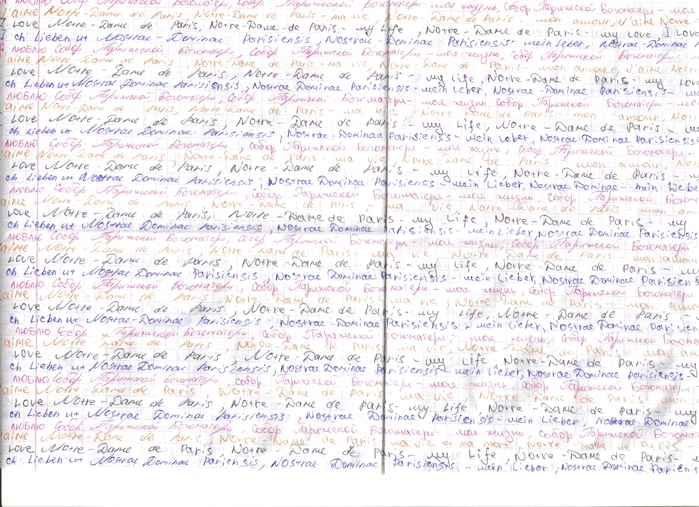 люблю Собор Парижской Богоматери, Собор Парижской Богоматери - моя жизнь, Собор Парижской Богоматери - моя
aime Notre-Dame de Paris, Notre-Dame de Paris - ma vie, Notre-Dame de Paris - mon amour, J'aime Notre
Love Notre-Dame de Paris, Notre-Dame de Paris, Notre-Dame de Paris - my love, I Love
ch Lieben ut Nostrae-Dominae Parisiensis, Nostrae-Dominae Parisiensis - mein Lieber, Nostrae Dominae
люблю Собор Парижской Богоматери, Собор Парижской Богоматери - моя жизнь, Собор Парижской Богоматери
aime Notre-Dame de Paris, Notre-Dame de Paris - ma vie, Notre-Dame de Paris - mon amour, J'aime Notre
Love Notre-Dame de Paris, Notre-Dame de Paris - my Life, Notre-Dame de Paris - my Love
ch Lieben ut Nostrae Dominae Parisiensis, Nostrae Dominae Parisiensis - mein Lieber, Nostrae Dominae Parisiensis - mein
люблю Собор Парижской Богоматери, Собор Парижской Богоматери - моя жизнь, Собор Парижской Богоматери - моя
aime Notre-Dame de Paris, Notre-Dame de Paris - ma vie, Notre-Dame de Paris - mon amour, Notre
Love Notre-Dame de Paris, Notre-Dame de Paris - my Life, Notre-Dame de Paris - my
ch Lieben ut Nostrae Dominae Parisiensis, Nostrae Dominae Parisiensis - mein Lieber, Nostrae Dominae Parisiensis
люблю Собор Парижской Богоматери, Собор Парижской Богоматери - моя жизнь, Собор Парижской Богоматери
aime Notre-Dame de Paris, Notre-Dame de Paris - ma vie, Notre-Dame de Paris - mon amour
Love Notre-Dame de Paris, Notre-Dame de Paris - my Life, Notre-Dame de Paris - my
ch Lieben ut Nostrae Dominae Parisiensis, Nostrae Dominae Parisiensis - mein Lieber, Nostrae Dominae - mein Lieber
люблю Собор Парижской Богоматери, Собор Парижской Богоматери - моя жизнь, Собор Парижской Богоматери - моя
aime Notre-Dame de Paris, Notre-Dame de Paris - ma vie, Notre-Dame de Paris - mon
Love Notre-Dame de Paris, Notre-Dame de Paris - my Life, Notre-Dame de Paris - my
ch Lieben ut Nostrae Dominae Parisiensis, Nostrae Dominae Parisiensis - mein Lieber, Nostrae Dominae Parisiensis
люблю Собор Парижской Богоматери, Собор Парижской Богоматери - моя жизнь, Собор Парижской Богоматери
aime Notre-Dame de Paris, Notre-Dame de Paris - ma vie, Notre-Dame de Paris - mon amour
Love Notre-Dame de Paris, Notre-Dame de Paris - my Life, Notre-Dame de Paris - my
ch Lieben ut Nostrae Dominae Parisiensis, Nostrae Dominae Parisiensis - mein Lieber, Nostrae Dominae Parisien
люблю Собор Парижской Богоматери, Собор Парижской Богоматери - моя жизнь, Собор Парижской Богоматери
aime Notre-Dame de Paris, Notre-Dame de Paris - ma vie, Notre-Dame de Paris - mon
Love Notre-Dame de Paris, Notre-Dame de Paris - my Life, Notre-Dame de Paris - my
ch Lieben ut Nostrae-Dominae Parisiensis, Nostrae-Dominae Parisiensis - mein Lieber, Nostrae Dominae Parisien
люблю Собор Парижской Богоматери, Собор Парижской Богоматери - моя жизнь, Собор Парижской Богоматери
aime Notre Dame de Paris, Notre-Dame de Paris - ma vie, Notre-Dame de Paris - mon
Love Notre-Dame de Paris, Notre-Dame de Paris - my Life, Notre-Dame de Paris - my
ch Lieben ut Nostrae Dominae Parisiensis, Nostrae Dominae Parisiensis - mein Lieber, Nostrae Dominae Parisiensis
люблю Собор Парижской Богоматери, Собор Парижской Богоматери - моя жизнь, Собор Парижской Богоматери
aime Notre-Dame de Paris, Notre-Dame de Paris - ma vie, Notre-Dame de Paris - mon
Love Notre-Dame de Paris, Notre-Dame de Paris - my Life, Notre-Dame de Paris - my
ch Lieben ut Nostrae Dominae Parisiensis, Nostrae Dominae Parisiensis - mein Lieber, Nostrae Dominae
люблю Собор Парижской Богоматери, Собор Парижской Богоматери - моя жизнь, Собор Парижской Богоматери
aime Notre-Dame de Paris, Notre-Dame de Paris - ma vie, Notre-Dame de Paris - mon
Love Notre-Dame de Paris, Notre-Dame de Paris - my Life, Notre-Dame de Paris - my
ch Lieben ut Nostrae Dominae Parisiensis, Nostrae Dominae Parisiensis - mein Lieber, Nostrae Dominae Parisiensis